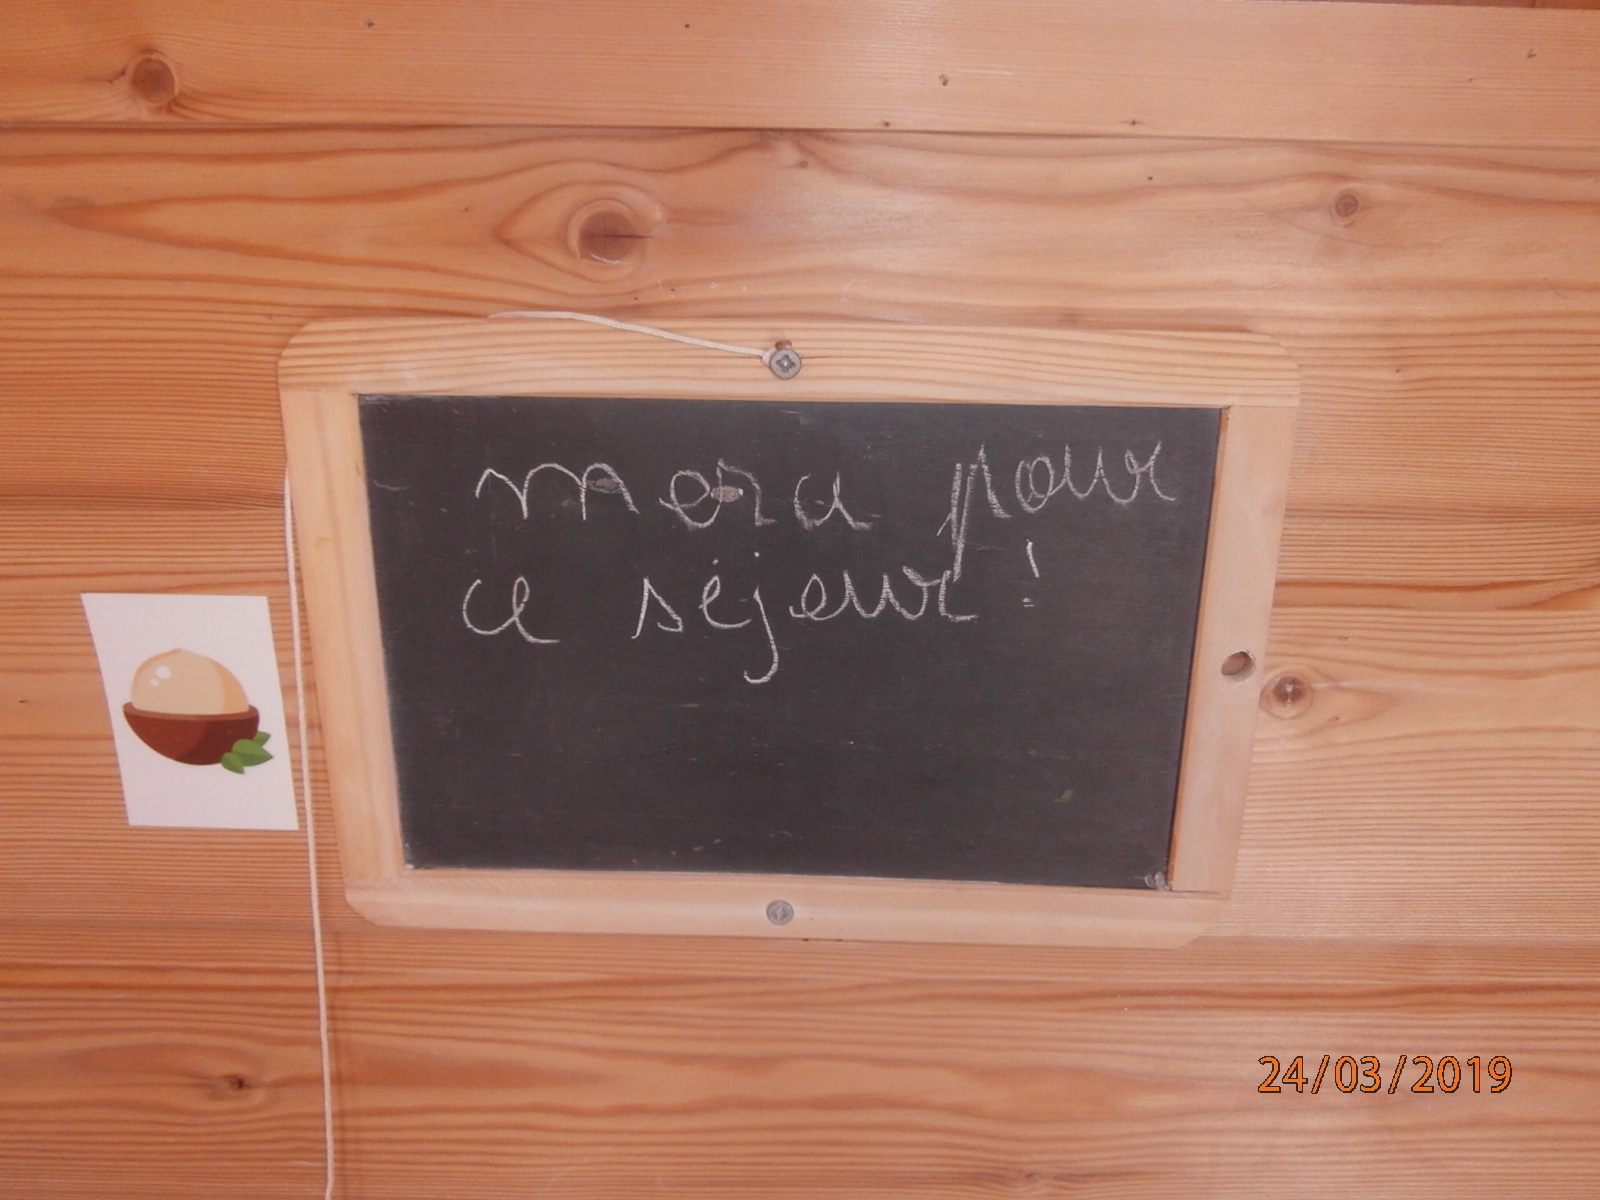 merci pour
ce séjour !
24/03/2019